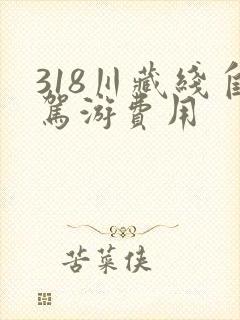 318川藏綫自
駕游費用
苦菜侠